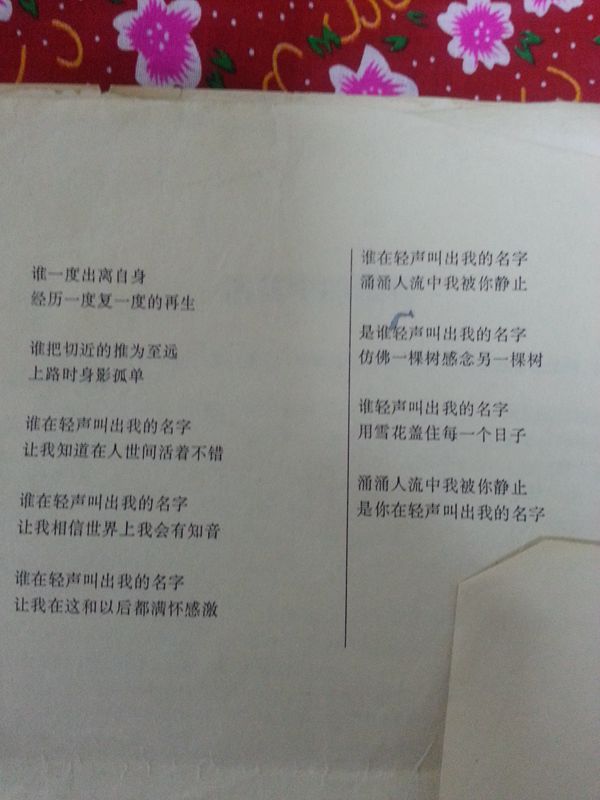 谁一度出离自身
经历一度复一度的再生
谁把切近的推为至远
上路时身影孤单
谁在轻声叫出我的名字
让我知道在人世间活着不错
谁在轻声叫出我的名字
让我相信世界上我会有知音
谁在轻声叫出我的名字
让我在这和以后都满怀感激
谁在轻声叫出我的名字
涌涌人流中我被你静止
是谁轻声叫出我的名字
仿佛一棵树感念另一棵树
谁轻声叫出我的名字
用雪花盖住每一个日子
涌涌人流中我被你静止
是你在轻声叫出我的名字